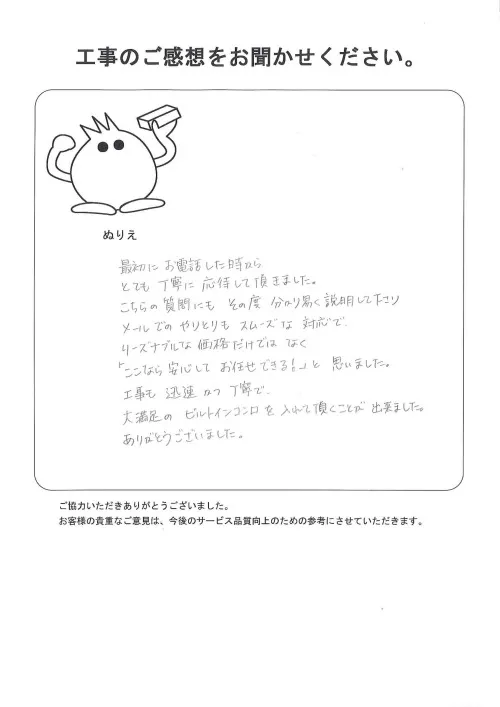 工事のご感想をお聞かせください。
ぬりえ
最初に お電話した時から
とても 丁寧に 応待して頂きました。
こちらの 質問にも その度 分かり易く説明して下さり
メールでの やりとりも スムーズな 対応で、
リーズナブルな価格だけでは なく
「ここなら安心して お任せできる!」と 思いました。
工事も 迅速 かつ 丁寧で、
大満足の ビルトインコンロを 入れて頂くことが 出来ました。
ありがとうございました。
ご協力いただきありがとうございました。
お客様の貴重なご意見は、今後のサービス品質向上のための参考にさせていただきます。